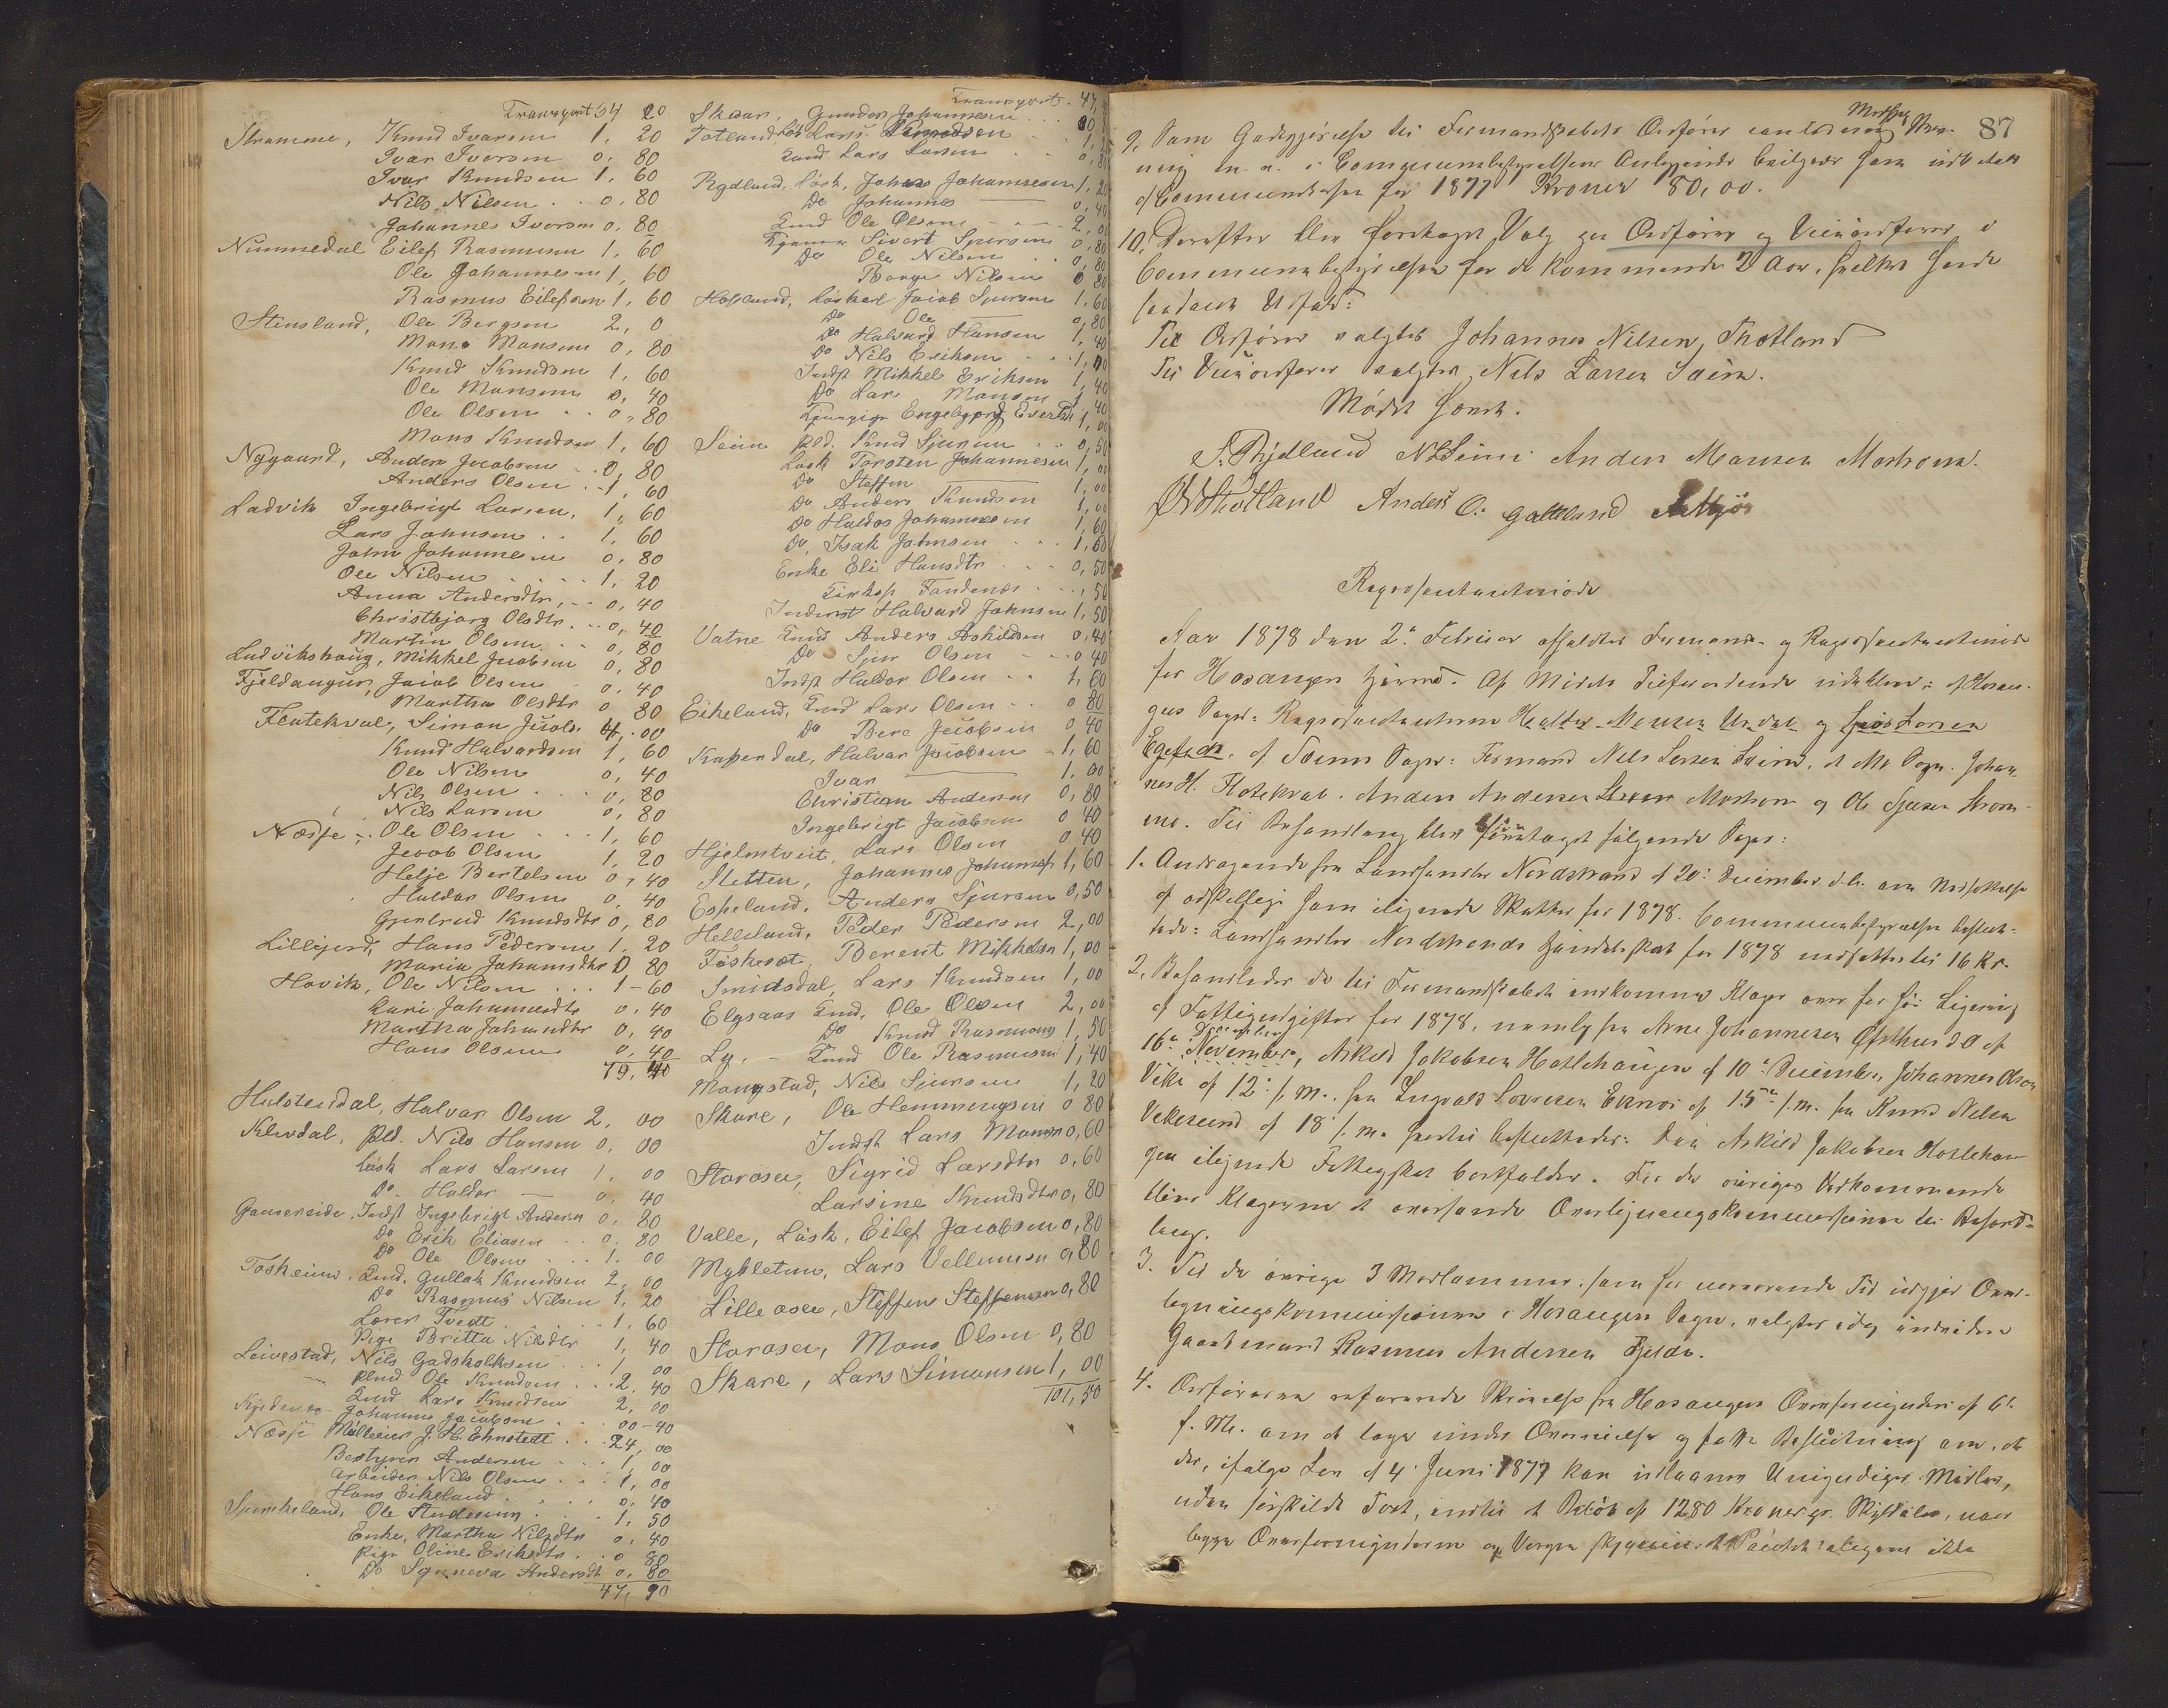 Transport 54 20
Strømme, Knud Ivarsen 1, 20
Ivar Iversen 0, 80
Ivar Knudsen 1, 60
Nils Nilsen 0, 80
Johannes Iversen 0, 80
Nummedal Eilef Rasmusen 1, 60
Ole Johannesen 1, 60
Rasmus Eilefsen 1, 60
Stensland, Ole Bergsen 2, 0
Mons Monsen 0, 80
Knud Knudsen 1, 60
Ole Monsen 0, 40
Ole Olsen 0, 80
Mons Knudsen 1, 60
Nygaard, Anders Jacobsen 0, 80
Anders Olsen 1, 60
Ladvik Ingebrigt Larsen, 1, 60
Lars Johnsen 1, 60
John Johannesen 0, 80
Ole Nilsen 1, 20
Anna Andersdtr, 0, 40
Christbjørg Olsdtr. 0, 40
Martin Olsen 0, 80
Ladvikshaug, Mikkel Jacobsen 0, 80
Fjeldanger, Jacob Olsen 0, 40
Martha Olsdtr 0 80
Flatekval, Simon Jacobs. 4, 00
Knud Halvardsen 1, 60
Ole Nilsen 0, 40
Nils Olsen 0, 80
Nils Larsen 0, 80
Næsse, Ole Olsen 1, 60
Jacob Olsen 1, 20
Helje Bertelsen 0, 40
Haldor Olsen 0, 40
Gjertrud Knudsdtr 0, 80
Lillejord, Hans Pedersen 1, 20
Maria Johansdtr 0, 80
Hovik, Ole Nilsen 1-60
Kari Johannesdtr 0, 40
Martha Johansdtr 0, 40
Hans Olsen 0, 40
79, 40
Halstendal, Halvar Olsen 2, 00
Klevdal, Nils Hansen 0, 00
Løsk Lars Larsen 1, 00
Do. Haldor — 0, 40
Indst Ingebrigt Andersen 0, 80
Do Erik Eliasen 0, 80
Do Ole Olsen 1, 00
Toskeim, Gullak Knudsen 2, 00
Do Rasmus Nilsen 1, 20
Lærer Tvedt 1, 60
Pige Britta Nilsdtr 1, 40
Leivestad, Nils Gadskolksen 1, 00
Ole Knudsen 2, 40
Lars Knudsen 2, 00
Johannes Jacobsen 00-40
Næsse Mølleeier J. H. Ehnstedt 24, 00
Bestyrer Andersen 1, 00
Arbeider Nils Olsen 1, 00
Hans Eikeland 0, 40
Ole Andersen 1, 50
Enke, Martha Nilsdtr 0, 40
Pige Oline Eriksdtr. 0 80
Do Synneva Andersdt 0, 80
47, 90
Transport. 47,
Skaar, Gunder Johannesen 80
Totland, Løsk Lars Knudsen 1,
Lars Larsen 0, 80
Rydland, Løsk, Johans Johannesen 1, 20
Do Johannes — 0, 40
Ole Olsen 2, 0
Sivert Sjursen 0, 80
Do Ole Nilsen 0, 80
Børge Nilsen 0 80
Hopland, Løskarl Jacob Sjursen 1, 60
Do Ole — 0, 80
Do Halvard Hansen 1, 40
Do Nils Eriksen 1, 00
Indst Mikkel Eriksen 1, 40
Do Lars Monsen 1 40
Engebjørg Evertsd 1, 00
Seim Knud Sjursen 0, 50
Løsk Torsten Johannesen 1, 00
Do Steffen — 1, 00
Do Anders Knudsen 1, 00
Do Haldor Johannesen 1, 60
Do, Isak Johnsen 1, 60
Enke Eli Hansdtr 0, 50
Tandenes , 50
Inderst Halvard Johnsen 1, 50
Vatne Anders Askildsen 0, 40
Do Sjur Olsen 0 40
Indst Haldor Olsen 1, 60
Eikeland, Lars Olsen 0 80
Do Bere Jacobsen 0 40
Kaperdal, Halvar Jacobsen 1, 60
Ivar — 1, 00
Christian Andersen 0, 80
Ingebrigt Jacobsen 0 40
Hjelmtveit, Lars Olsen 0 40
Sletten, Johannes Johannes 1, 60
Espeland, Anders Sjursen 0, 50
Helleland, Peder Pedersen 2, 00
Toskesæt, Berent Mikkelsen 1, 00
Smidsdal, Lars Knudsen 1, 00
Elysaas Ole Olsen 2, 00
Do Knud Rasmussen 1, 50
Ly, — Ole Rasmussen 1, 40
Mongstad, Nils Sjursen 1, 20
Skare, Ole Hemmingsen 0 80
Indst Lars Monsen 0, 60
Storoser, Sigrid Larsdtr 0, 60
Larsine Knudsdtr 0, 80
Valle, Løsk, Eilef Jacobsen 0, 80
Mykletun, Lars Vellumsen 0, 80
Lilleoser, Steffen Steffensen 0, 80
Storoser, Mons Olsen 0, 80
Skare, Lars Simonsen 1, 00
101, 50
87
9. Som Godtgjørelse til Formandskabets Ordfører
m. v. i Communebestyrelsens Anliggende bevilgedes
af Communekassen for 1877 Kroner 80,00.
10. Derefter blev foretaget Valg paa Ordfører og Viceordfører i
Communebestyrelsen for de kommende 2 Aar, hvilket havde
saadant Udfald:
Til Ordfører valgtes Johannes Nilsen Thotland
Til Viceordfører valgtes Nils Larsen Seim.
Mødet hævet.
S. Rydland N L Seim Anders Monsen Mostrom.
J N Thotland Anders O. Gatteland
Repræsentantmøde
Aar 1878 den 2. Februar afholdtes Formands- og Repræsentantmøde
for Hosangers Herred. Af Mødets Tilforordnede udeblev: af Hosan-
gers Sogn: Repræsentanterne Monsen Undal og Larsen
af Seims Sogn: Formand Nils Larsen Seim, af Mo Sogn. Johan-
nes H. Flatekval. Anders Andersen Mostrom og Ole Sjursen Strøm-
me. Til Behandling blev foretaget følgende Sager:
1. Andragende fra Landhandler Nordstrand af 20. December d. A. om Nedsættelse
af Skatter for 1878. Communebestyrelsen beslut-
tede: Landhandler Nordstrands Handelsskat for 1878 nedsættes til 16 Kr.
2. Behandledes de til Formandskabet indkomne Klager over Ligning
af Fattigudgifter for 1878, nemlig fra Arne Johannesen
December
16. November, Askild Jakobsen Hatlehaugen af 10. December, Johannes Olsen
Vike af 12. s. M., fra Ingvald Evenvi af 15. s. M. fra Knud Nilsen
Vekesund af 18. s. M. hvortil besluttedes: Den Askild Jakobsen Hatlehau-
gen ilignede Fattigskat bortfalder. For de øvriges Vedkommende
bliver Klagerne at oversende Overligningskommissionen til Behand-
ling.
3. Til de øvrige 3 Medlemmer, som for nærværende Tid udgjør Over-
ligningskommissionen i Hosangers Sogn, valgtes idag
Gaardmand Rasmus Andersen Fjelde.
4. Ordføreren Skrivelse fra Hosangers Overformynderi af 6.
f. M. om at tage under Overveielse og fatte Beslutning om, at
der, ifølge Lov af 4. Juni 1877 kan udlaanes Umyndiges Midler,
uden særskildt Taxt, indtil et Beløb af 1280 Kroner pr. Skylddaler, naar
begge Overformynderne og Vergen Pantet ikke